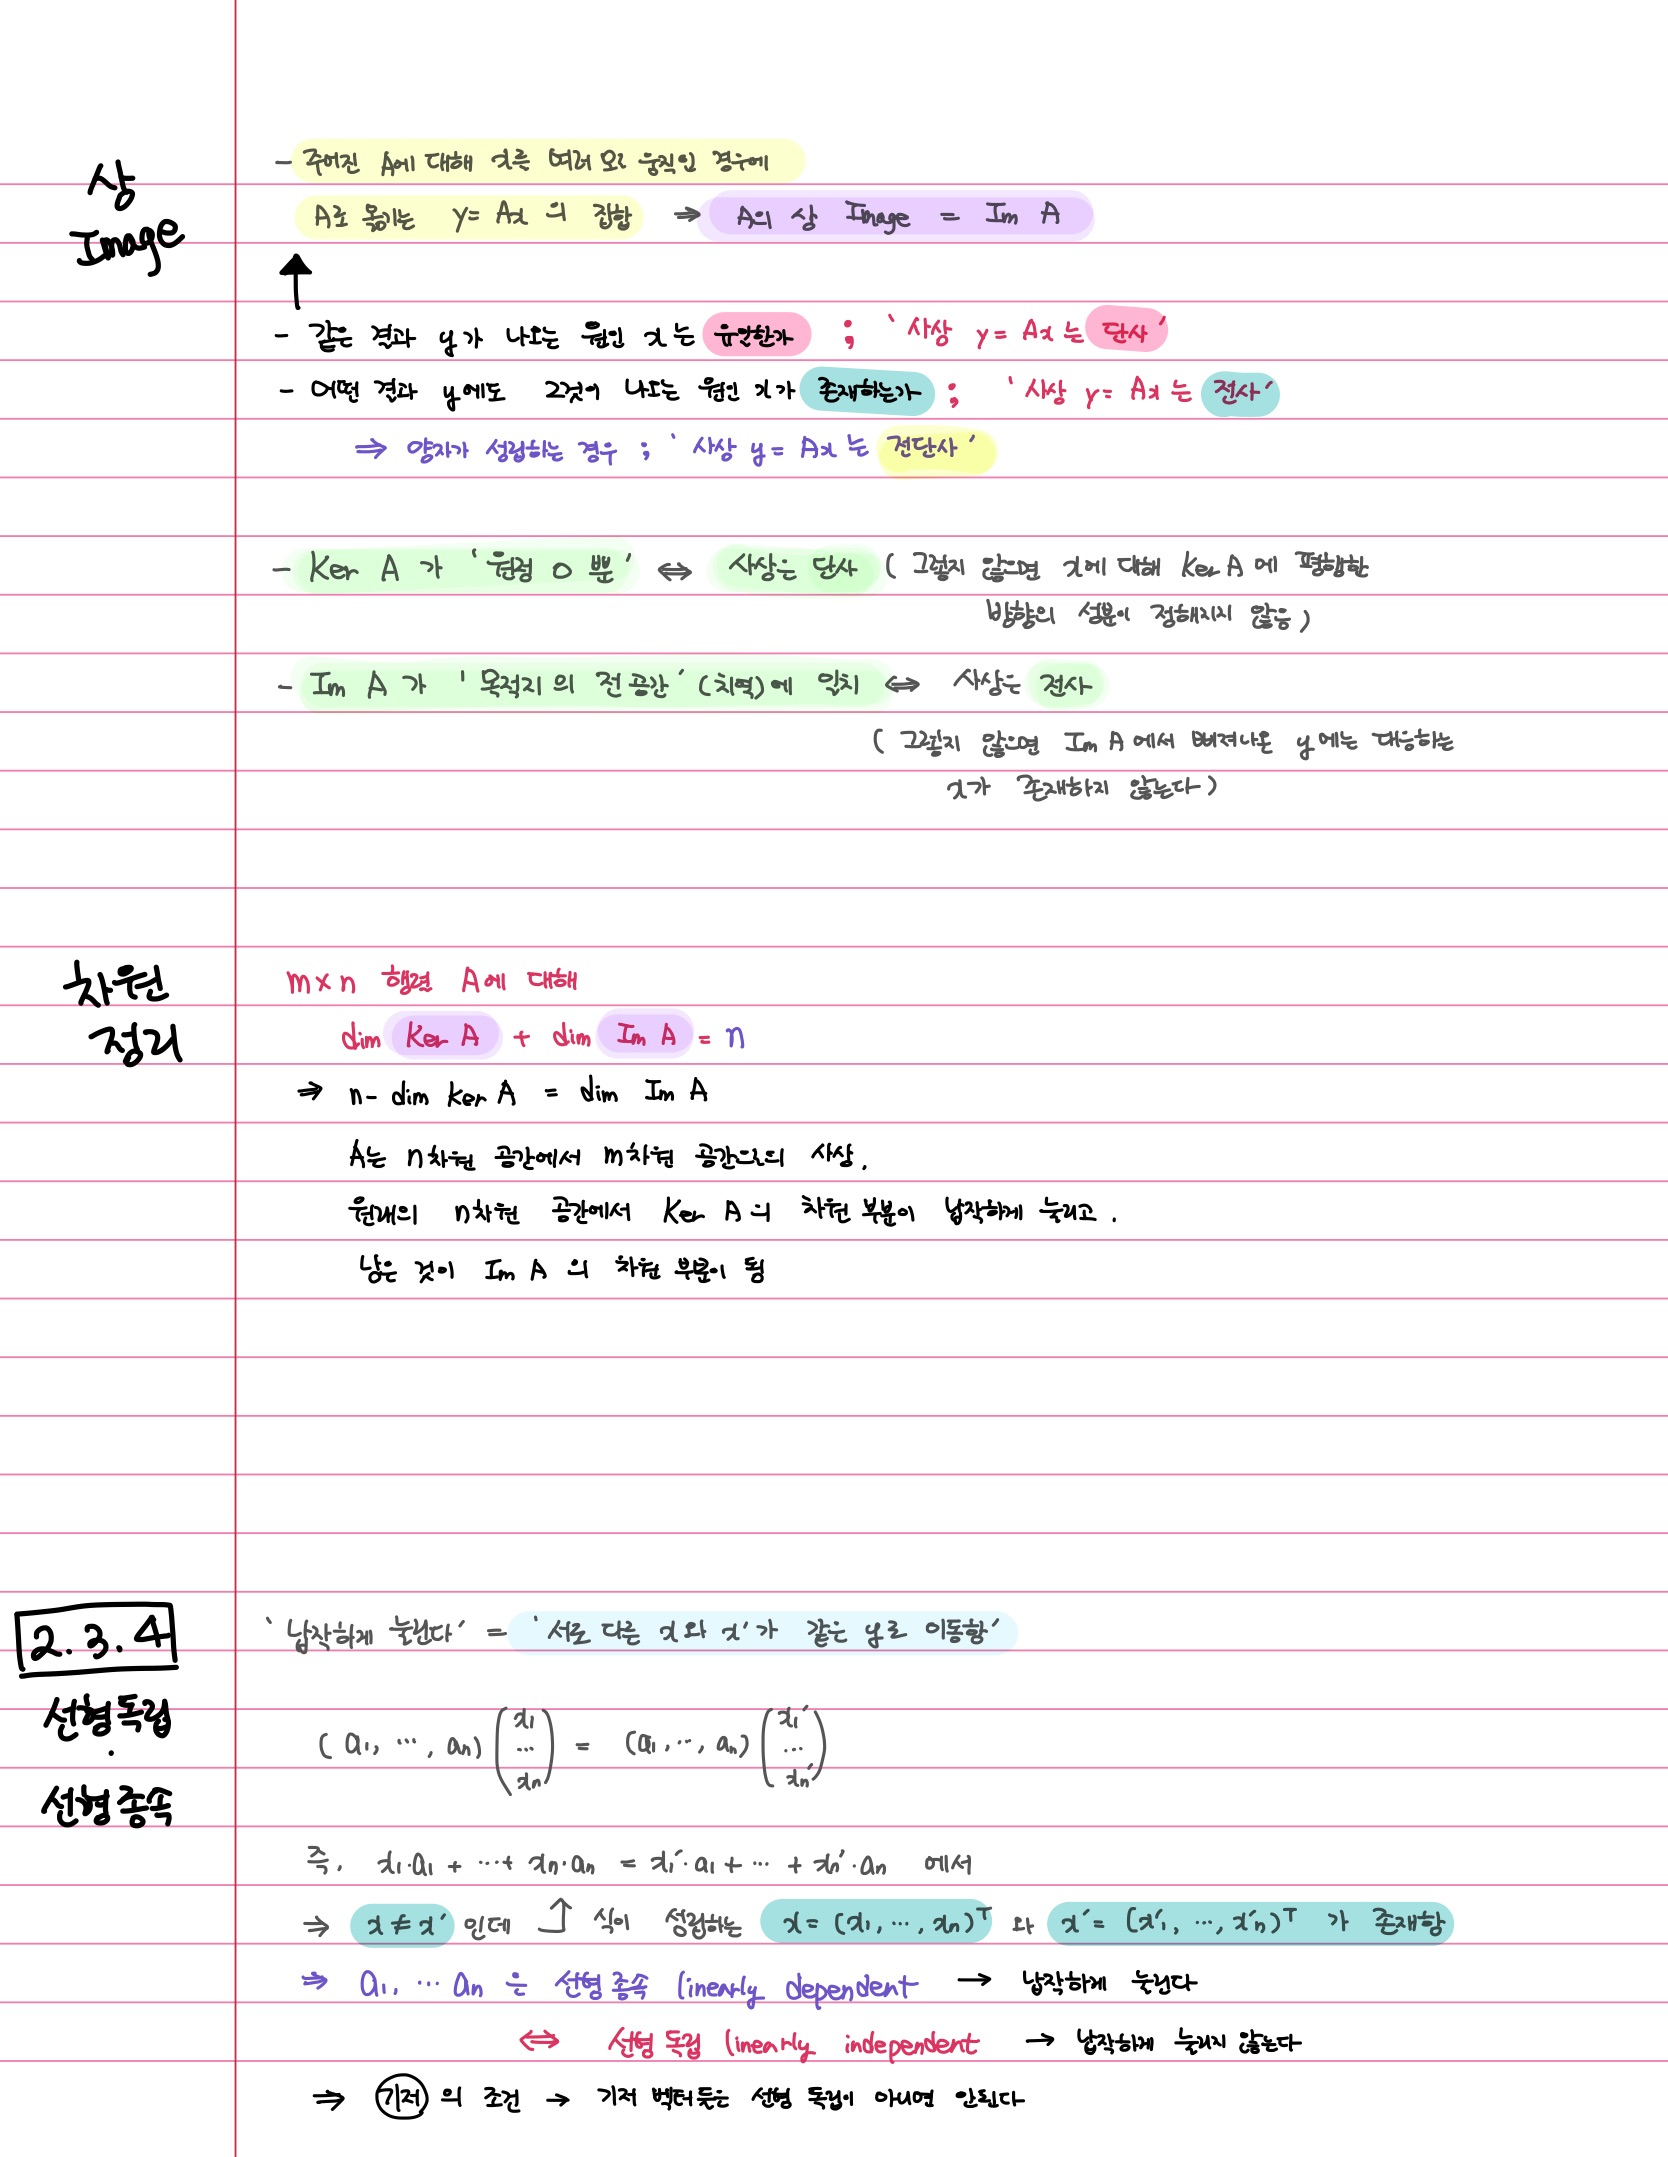 상
Image
- 주어진 A에 대해 x를 여러 모로 움직인 경우에
A로 옮기는 y= Ax 의 집합 ⇒ A의 상 Image = Im A
↑
- 같은 결과 y가 나오는 원인 x는 유일한가 ; '사상 y= Ax 는 단사'
- 어떤 결과 y에도 그것이 나오는 원인 x가 존재하는가 ; '사상 y= Ax 는 전사'
⇒ 양자가 성립하는 경우 ; '사상 y= Ax 는 전단사'
- Ker A 가 '원점 0 뿐' ⇔ 사상은 단사 ( 그렇지 않으면 x에 대해 Ker A 에 평행한
방향의 성분이 정해지지 않음 )
- Im A 가 '목적지의 전 공간' (치역)에 일치 ⇔ 사상은 전사
( 그렇지 않으면 Im A 에서 삐져나온 y에는 대응하는
x가 존재하지 않는다 )
차원
정리
m×n 행렬 A에 대해
dim Ker A + dim Im A = n
⇒ n- dim Ker A = dim Im A
A는 n차원 공간에서 m차원 공간으로의 사상.
원래의 n차원 공간에서 Ker A의 차원 부분이 납작하게 눌리고.
남은 것이 Im A 의 차원 부분이 됨
2.3.4
선형독립
·
선형종속
'납작하게 눌린다' = '서로 다른 x와 x'가 같은 y로 이동함'
( a1, ⋯, an) ( x1 ⋯ xn ) = (a1, ⋯, an) ( x1' ⋯ xn' )
즉. x1·a1 + ⋯+ xn·an = x1'·a1 + ⋯ + xn'·an 에서
⇒ x ≠ x' 인데 ↑ 식이 성립하는 x = (x1, ⋯, xn)ᵀ 와 x' = (x'1, ⋯, x'n)ᵀ 가 존재함
⇒ a1, ⋯ an 은 선형 종속 linearly dependent → 납작하게 눌린다
⇔ 선형 독립 linearly independent → 납작하게 눌리지 않는다
⇒ 기저 의 조건 → 기저 벡터듯은 선형 독립이 아니면 안된다